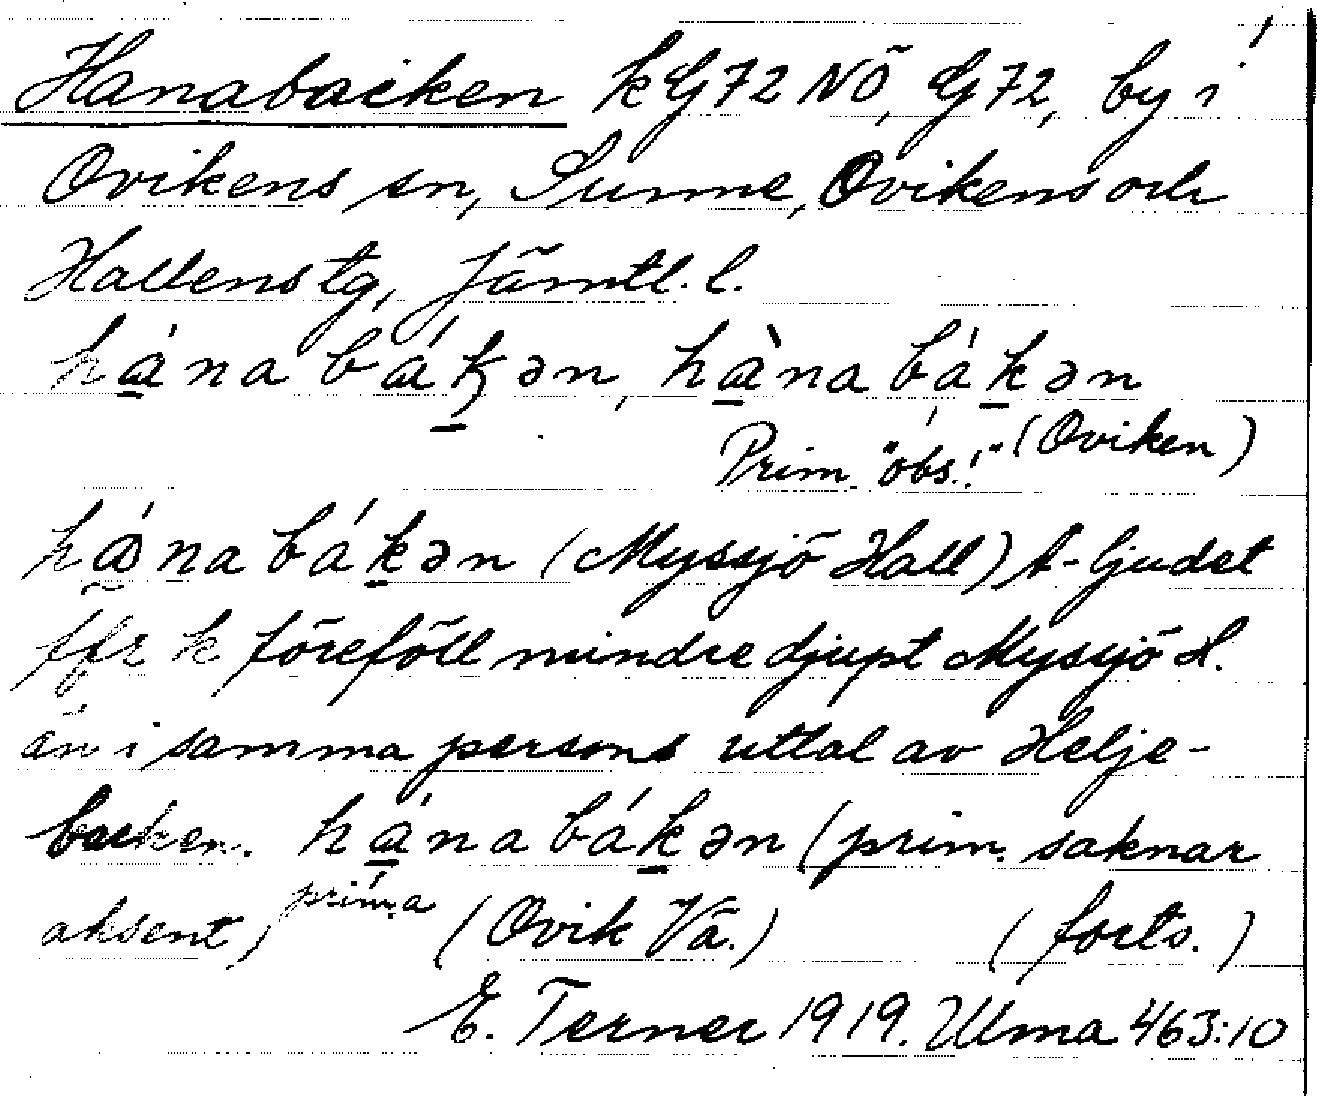 Hanabacken kG72NÖ, G72, by i
Ovikens sn, Sunne, Ovikens och
Hallens tg, Jämtl. l.
hána bákən, hàna bákən
Prim. "obs.!" (Oviken)
hána bákən (Myssjö Hall) A-ljudet
ffr k föreföll mindre djupt Myssjö H.
än i samma persons uttal av Helje-
backen. hána bákən (prim. saknar
aksent) prima (Ovik Vä.) (forts.)
E. Terner 1919. Ulma 463:10